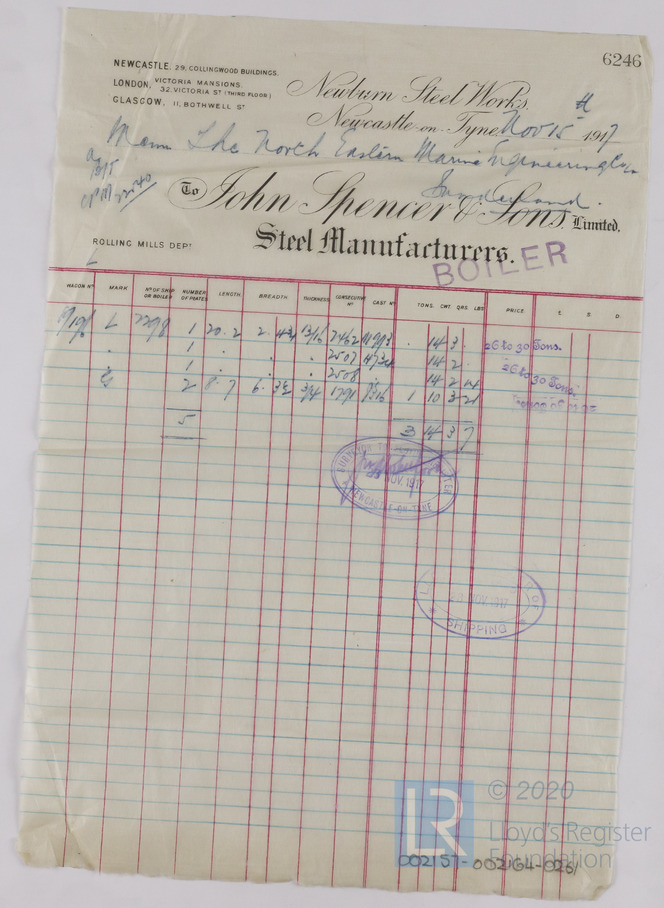 6246
NEWCASTLE. 29, COLLINGWOOD BUILDINGS.
LONDON, VICTORIA MANSIONS.
32, VICTORIA ST (THIRD FLOOR)
GLASGOW, 11, BOTHWELL ST
Newburn Steel Works,
Newcastle-on-Tyne, Nov 15th 1917
The North Eastern Marine Engineering Co
Sunderland.
To John Spencer & Sons, Limited,
Steel Manufacturers.
ROLLING MILLS DEPT
BOILER
WAGON No MARK No OF SHIP OR BOILER NUMBER OF PLATES LENGTH BREADTH THICKNESS CONSECUTIVE No CAST No TONS. CWT. QRS. LBS PRICE £ S D
1 20.2 13/16 2462 14 3 26 to 30 Tons.
1 2507 14 2 26 to 30 Tons.
1 2508 14 2 14
2 8.7 3/4 1 10 3 21
5 3 14 3 7
NOV. 1917
NEWCASTLE-ON-TYNE
NOV. 1917
OF
SHIPPING
LR
© 2020
Lloyd's Register
Foundation
002157-002164-026